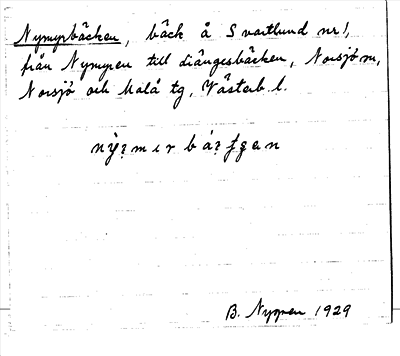 Nymyrbäcken, bäck å Svartlund nr 1,
från Nymyren till diångesbäcken, Norsjö sn,
Norsjö och Malå tg, Västerb. l.
B. Nygren 1929